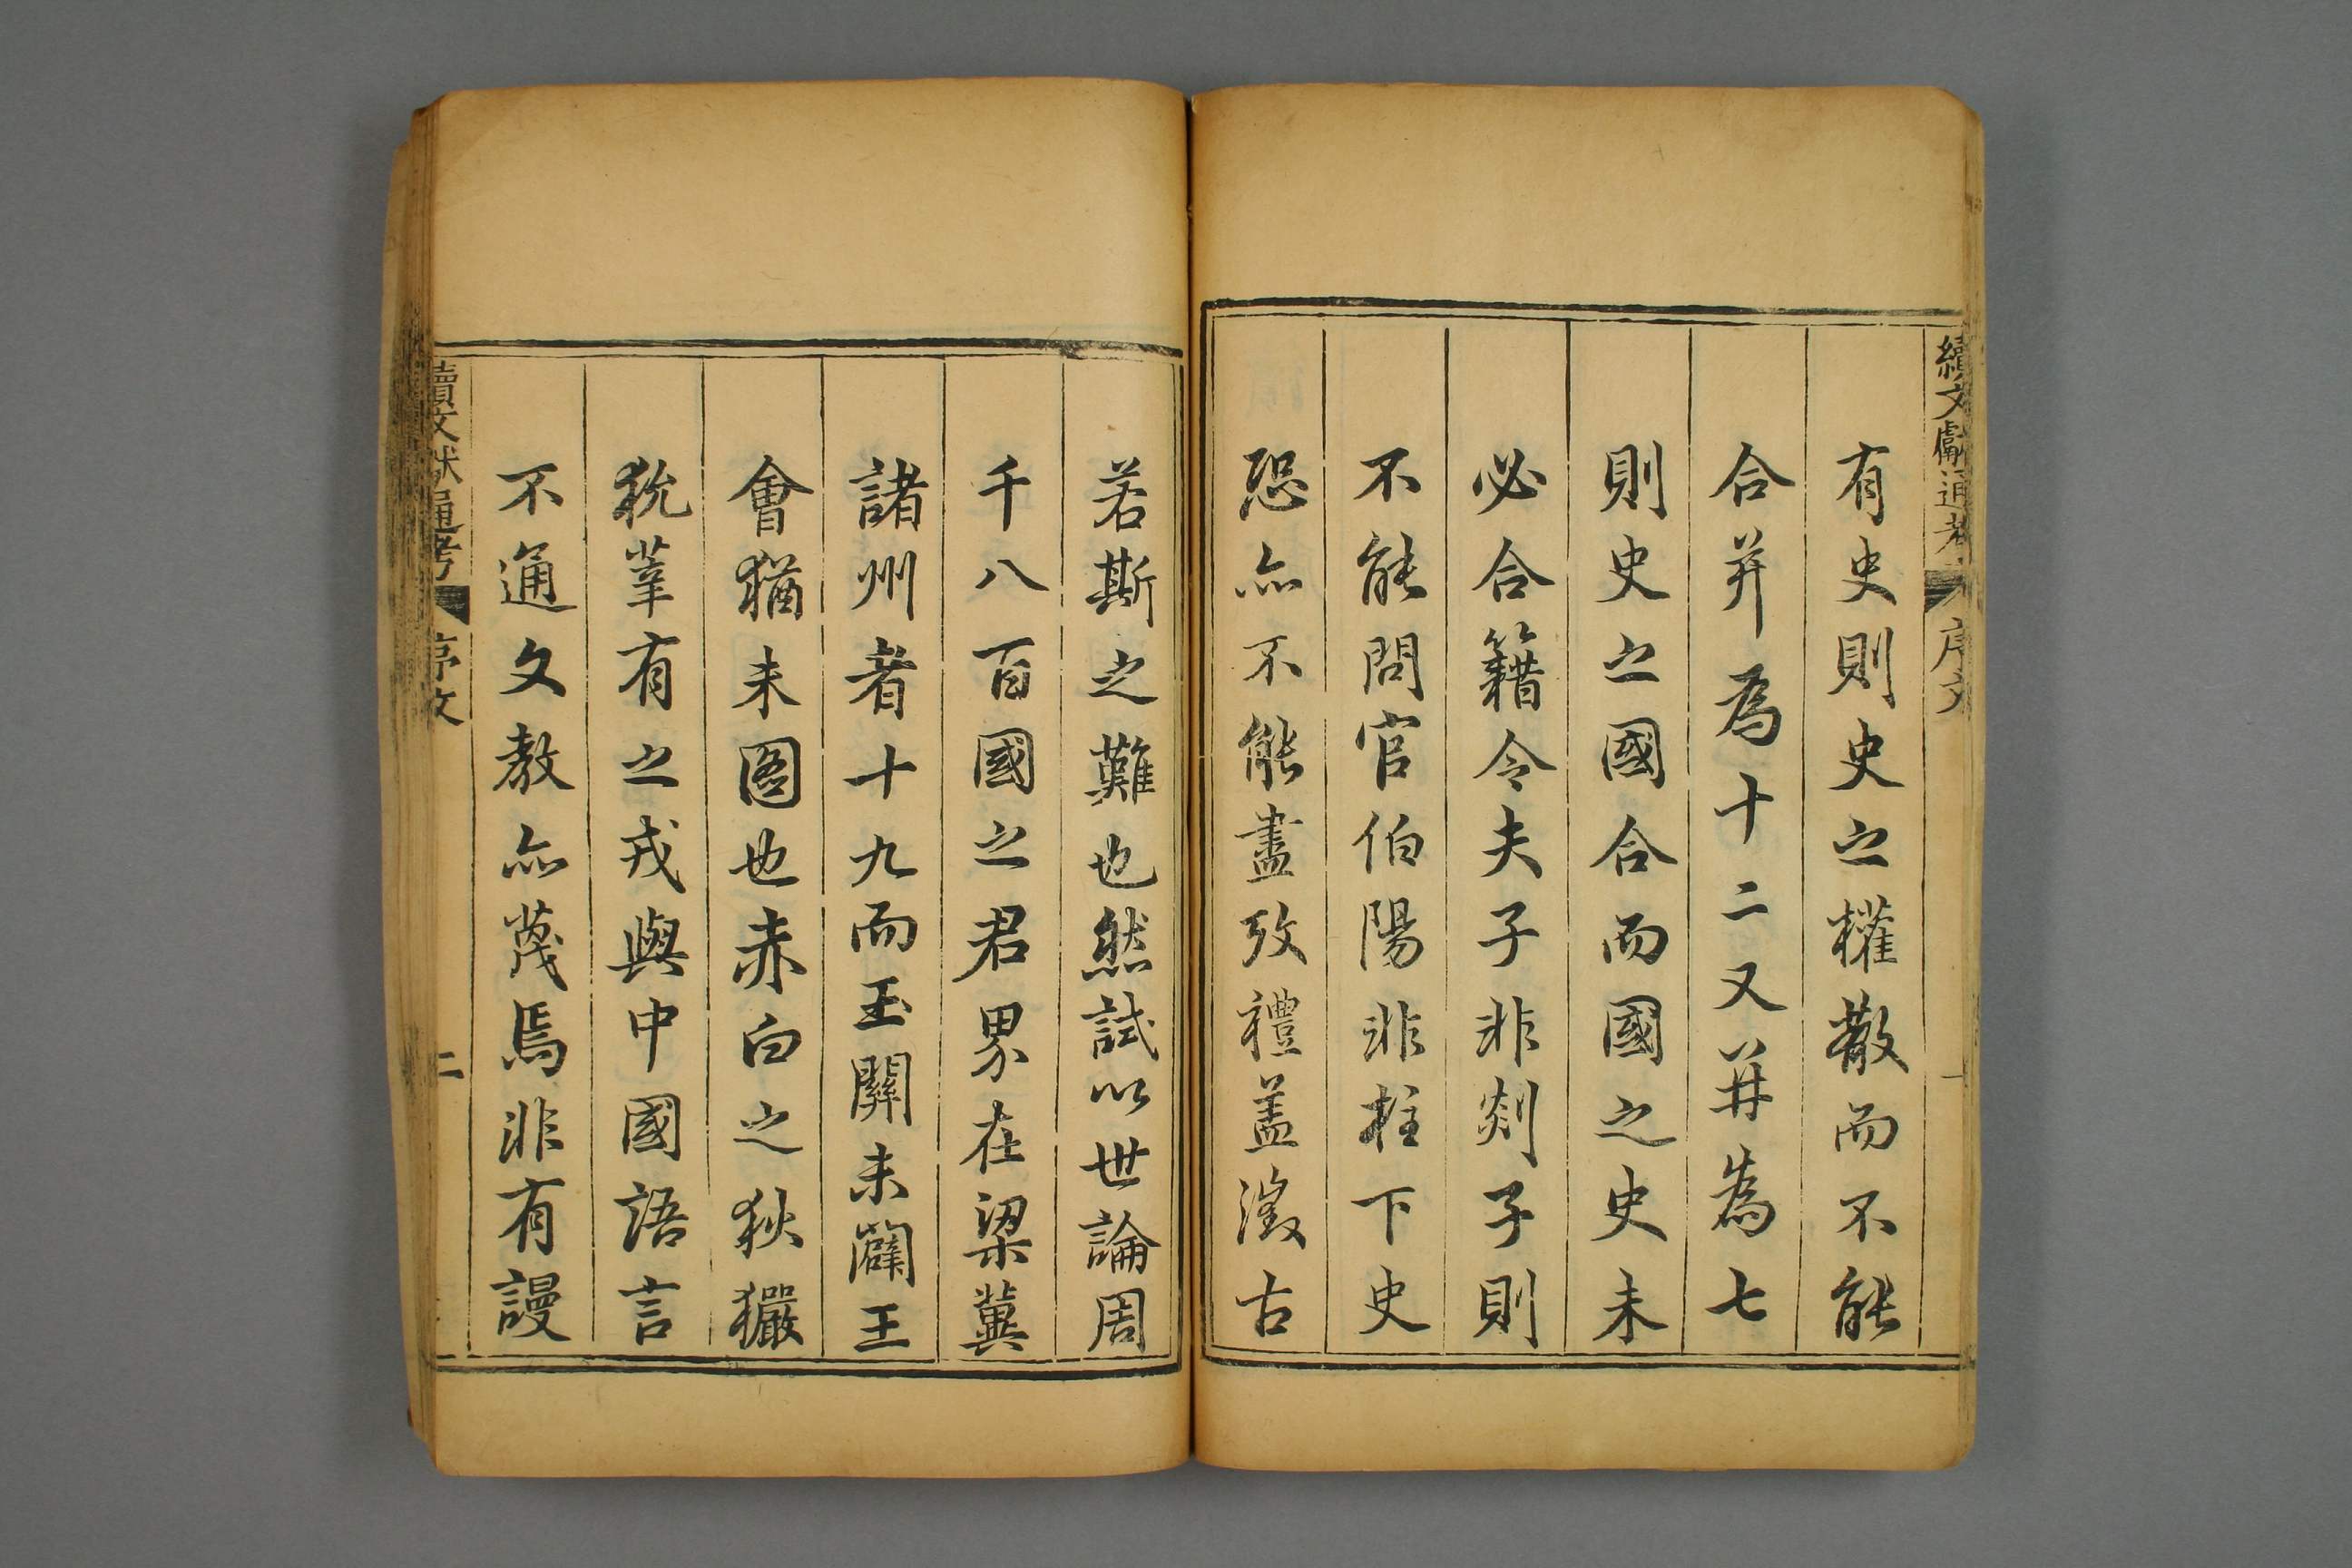 續文獻通考 序文
有史則史之權散而不能
合并為十二又并為七
則史之國合而國之史未
必合籍令夫子非郯子則
不能問官伯陽非柱下史
恐亦不能盡攷禮蓋濬古
若斯之難也然試以世論周
千八百國之君界在梁冀
諸州者十九而玉關未闢王
會猶未圖也赤白之狄玁
狁羣有之戎與中國語言
不通文教亦蔑焉非有謾
續文獻通考 序文 二